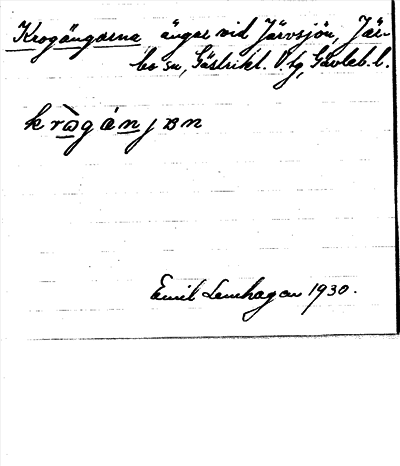 Krogängarna ängar vid Järvsjön, Jär-
bo sn, Gästrikl. V tg, Gävleb. l.
krògánjɐn
Emil Lenhagen 1930.